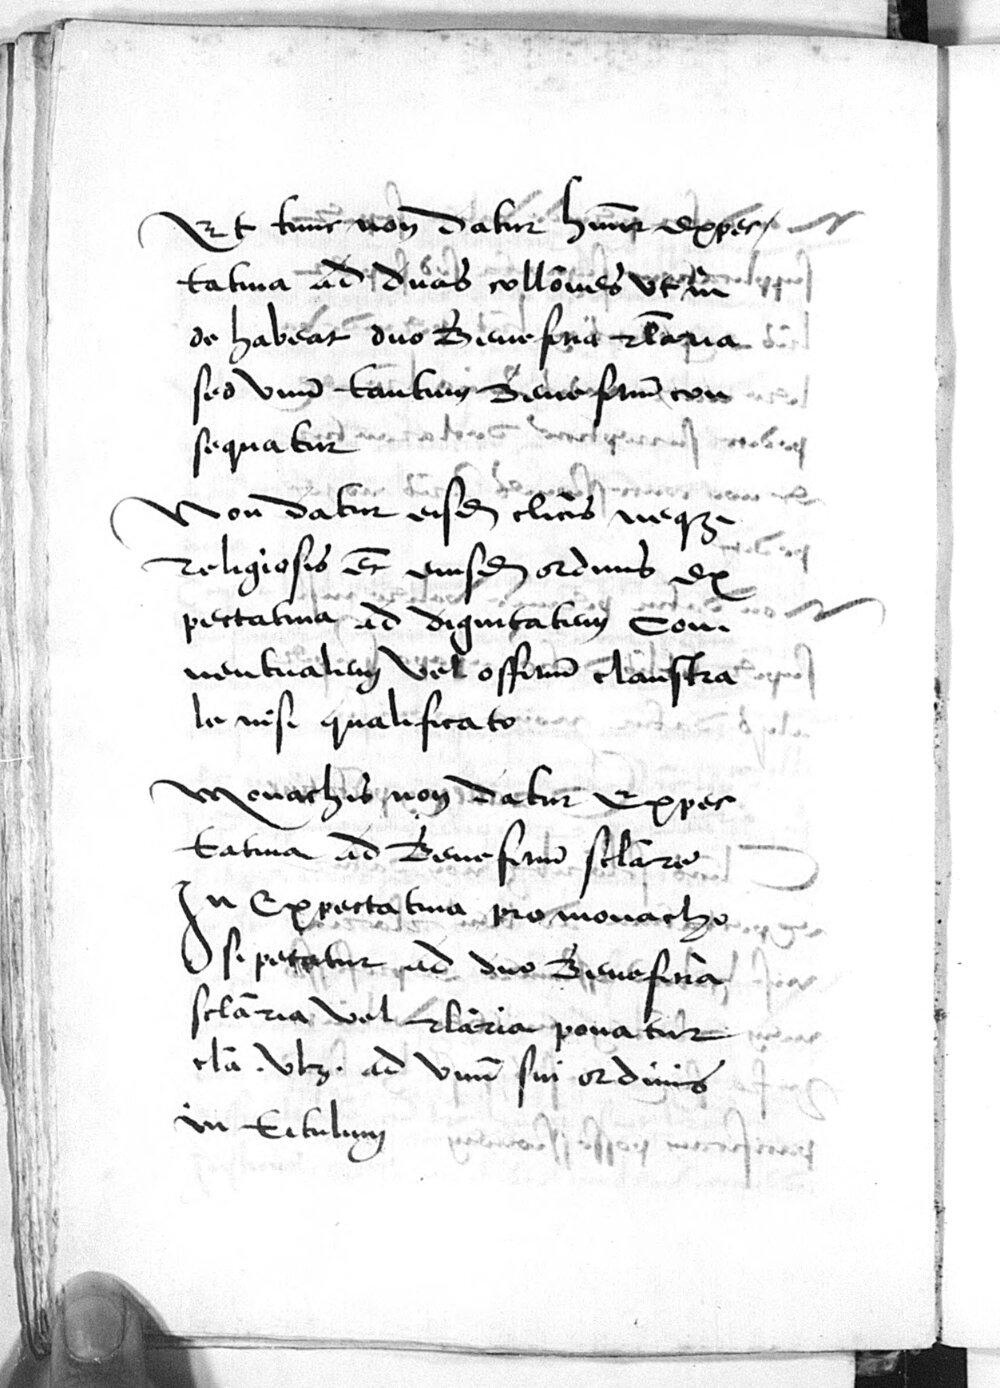 Et tunc non datur hm̄oi expec/
tatiua ad duas collōnes vt in
de habeat duo Beneficia rl̄aria
sed vnū tantum Beneficiū con
sequatur
Non datur eisdē clicis neqꝫ
Religiosis et̄ eiusdē ordinis ex
pectatiua ad dignitatem Con
uentualem vel officiū claustra
le nisi qualificato
Monachis non datur Expec
tatiua ad Beneficiū sclāre
In Expectatiua pro monacho
si petatur ad duo Beneficia
sclāria vel rlāria ponatur
clā . vtꝫ . ad vnū sui ordinis
in titulum